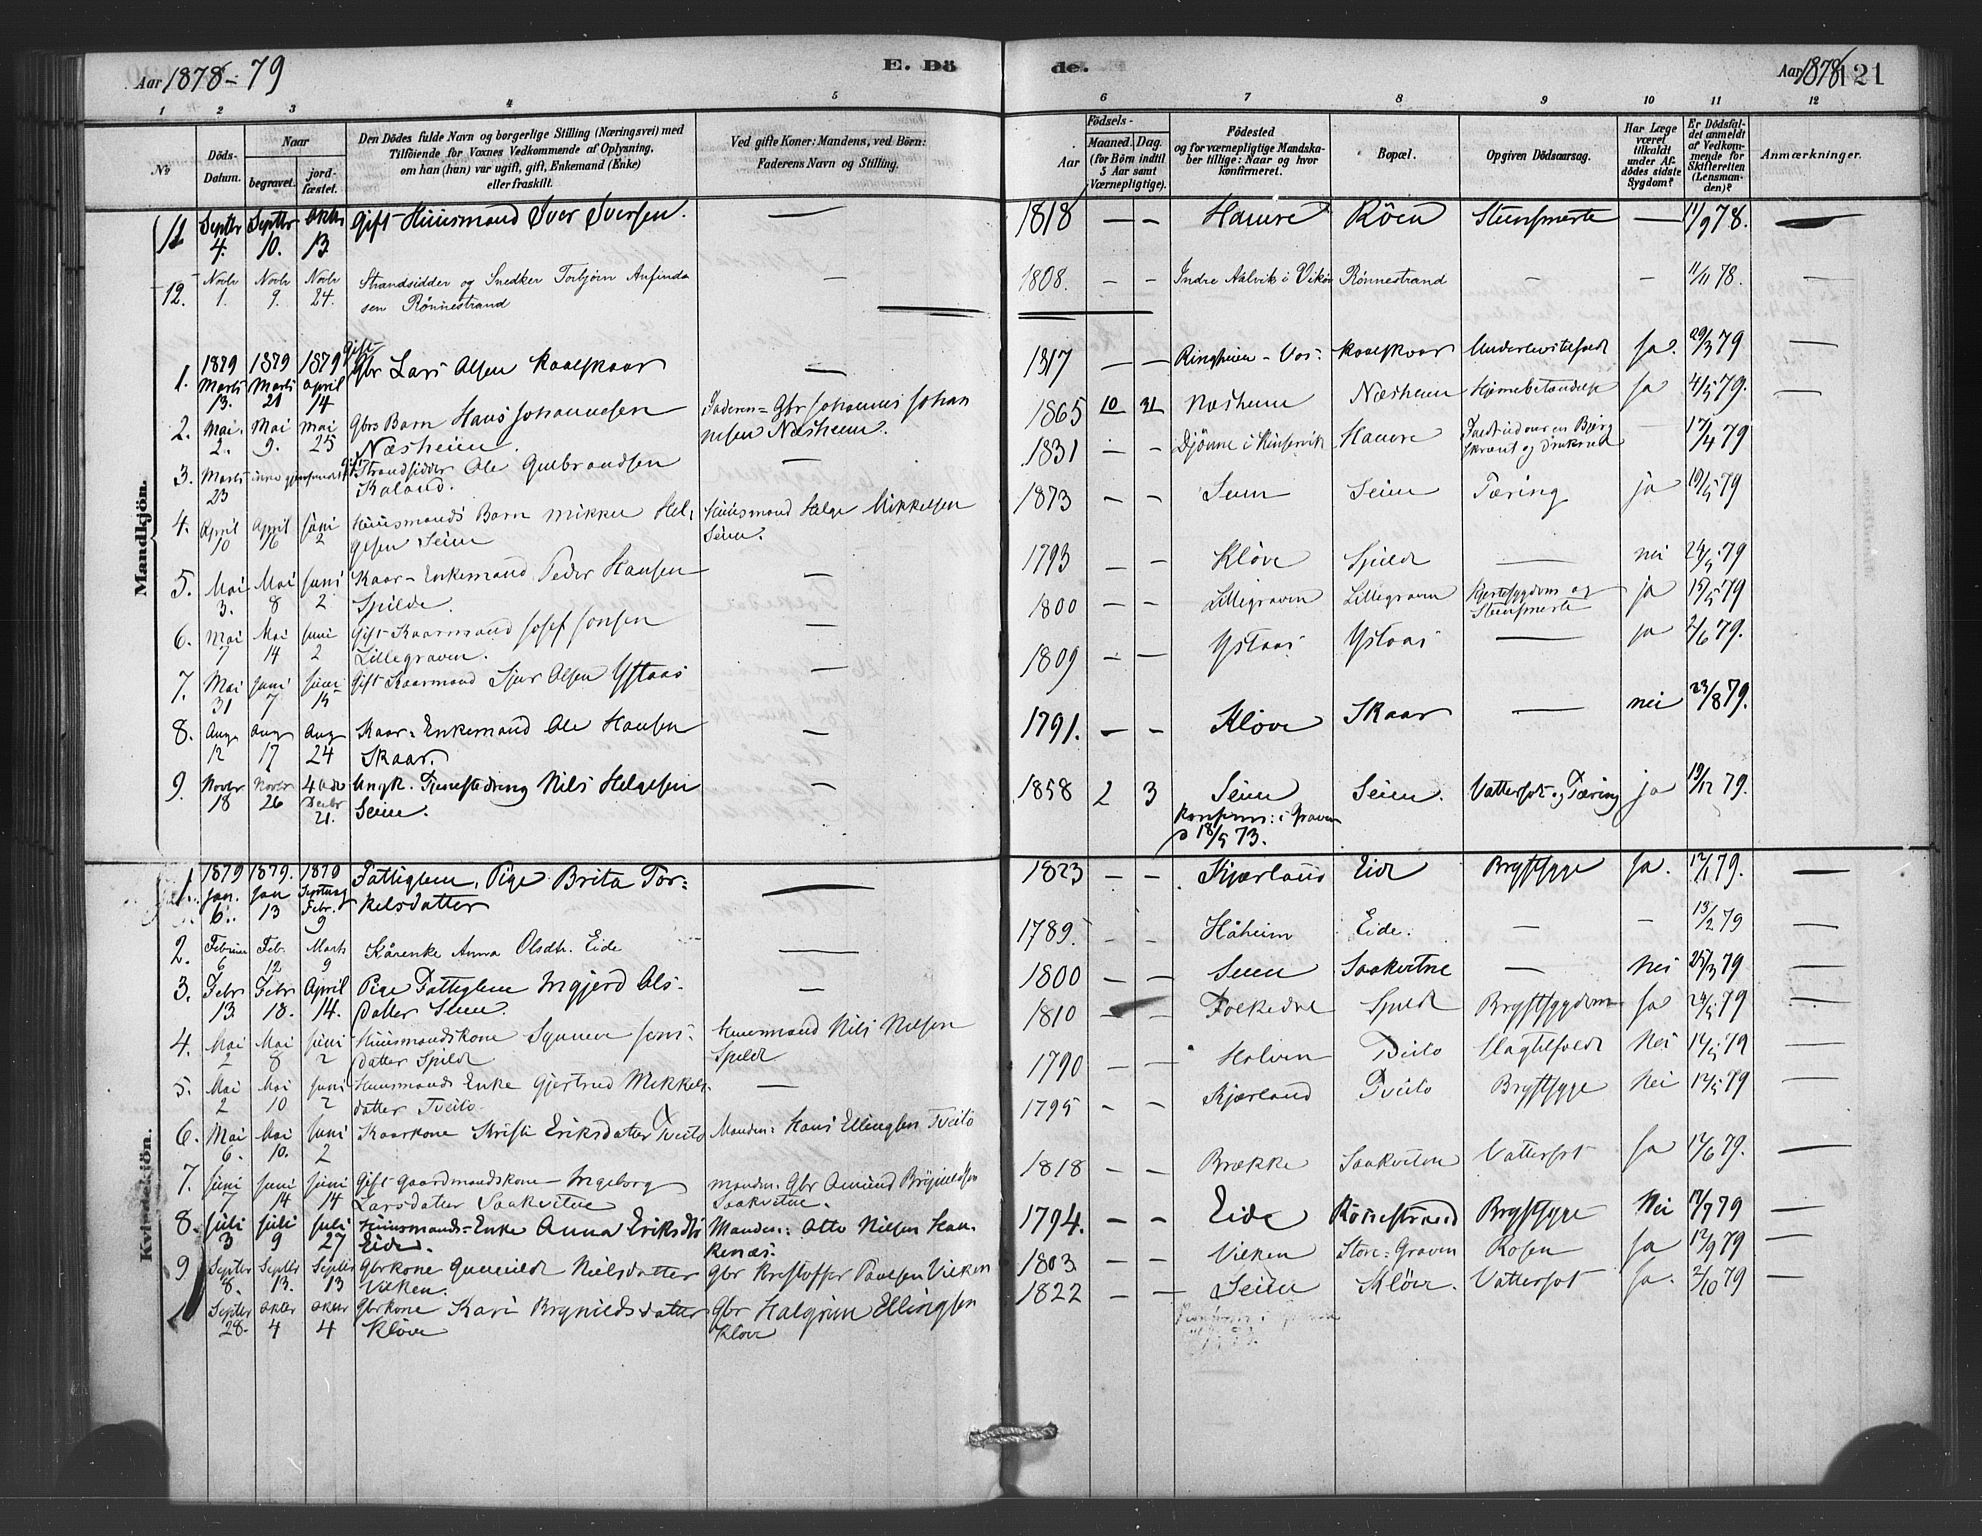 Aar 1878-79
E. Dö
de.
Aar 1878
121
1 2 3 4 5 6 7 8 9 10 11 12
No
Döds-Datum.
Naar
begravet.
jord-fæstet.
Den Dödes fulde Navn og borgerlige Stilling (Næringsvei) med
Tilföiende for Voxnes Vedkommende af Oplysning,
om han (hun) var ugift, gift, Enkemand (Enke)
eller fraskilt.
Ved gifte Koner: Mandens, ved Börn:
Faderens Navn og Stilling.
Födsels-
Aar
Maaned.
(for Börn indtil
5 Aar samt
Værnepligtige).
Dag.
Födested
og for værnepligtige Mandska-
ber tillige: Naar og hvor
konfirmeret.
Bopæl.
Opgiven Dödsaarsag.
Har Læge
været
tilkaldt
under Af-
dödes sidste
Sygdom?
Er Dödsfal-
det anmeldt
af Vedkom-
mende for
Skifteretten
(Lensman-
den)?
Anmærkninger.
Mandkjön.
11 Septbr 4. Septbr 10. Oktbr 13 Gift Huusmand Iver Iversen. — 1818 — — Haure Røen — 11/9 78. —
12. Novbr 1. Novbr 9. Novbr 24. Strandsidder og Snedker Torbjørn Anfinds
sen Rønnestrand — 1808. — — Indre Aalvik i Vikør Rønnestrand — — 11/11 78. —
1. 1879 Marts 13. 1879 Marts 21 1879 April 14 Gift Gbr Lars Olsen Kaalskaar — 1817 — — Ringheim - Vos: Kaalskaar Ja. 29/3 79 —
2. Mai. 2. Mai 9. Mai 25 Gbrs Barn Hans Johannesen
Næsheim. Faderen= Gbr Johannes Johan
nesen Næsheim. 1865 10 21 Næsheim Næsheim Ja 4/5 79. —
3. Marts 23 Strandsidder Ole Gulbrandsen
Kaland. — 1831 — — Djønne i Kinservik Haure — 17/4 79 —
4. April 10 April 16 Juni 2 Huusmands Barn Mikkel Hel-
gesen Seim Huusmand Helge Mikkelsen
Seim. 1873 — — Seim Seim Tæring ja 19/5 79 —
5. Mai 3. Mai 8 Juni 2 Kaar-Enkemand Peder Hansen
Spilde. — 1793 — — Kløve Spilde — nei 24/5 79 —
6. Mai 7 Mai 14 Juni 2 Gift Kaarmand Josef Jonsen
Lillegraven. — 1800 — — Lillegraven Lillegraven Hjertesygdom og
ja 15/5 79 —
7. Mai 31 Juni 7 Juni 15 Gift Kaarmand Sjur Olsen Ystaas — 1809 — — Ystaas Ystaas — ja 2/6 79. —
8. Aug. 12 Aug 17 Aug 24 Kaar-Enkemand Ole Hansen
Skaar. — 1791. — — Kløve Skaar — nei 23/8 79. —
9. Novbr 18 Novbr 26 Decbr 21. Ungk. Tjenestedreng Nils Helgesen
Seim. — 1858 2 3 Seim
Konfirm: i Graven
73. Seim. Vattersot og Tæring ja 19/12 79. —
Kvindekjön.
1. 1879 Jan. 6. 1879. Jan 13 1879 Febr. 9 Fattiglem, Pige Brita Tor=
kelsdatter — 1823 — — Kjærland Eide Brystsyge Ja. 79. —
2. 6 Feb. 12 Marts 9 Kårenke Anna Olsdtr. Eide — 1789. — — Håheim Eide. — — 13/2 79 —
3. Febr 13 Febr 18. April 14. Pige Fattiglem Ingjerd Ols-
datter Seim. — 1800 — — Seim Saakvitne — Nei 25/3 79 —
4. Mai 2 Mai 8 Juni 2 Huusmandskone Synneve Jons-
datter Spilde Huusmand Nils Nilsen
Spilde 1810 — Folkedal Spilde Brystsygdom Ja 24/5 79 —
5. Mai 2 Mai 10 Juni 2 Huusmands Enke Gjertrud Mikkels-
datter Tveito. — 1790 — — Holven Tveito Slagtilfælde Nei 14/5 79 —
6. Mai 6. Mai 10. Juni 2 Kaarkone Kristi Eriksdatter Tveito Manden: Hans Ellingsen Tveito 1795 — — Kjærland Tveito Brystsyge Nei 14/5 79 —
7. Juni 7 Juni 14 Juni 14 Gift Gaardmandskone Ingeborg
Larsdatter Saakvitne Manden: Gbr Amund Brynildsen
Saakvitne. 1818 — — Brække Saakvitne Vattersot Ja 17/6 79. —
8. Juli 3 Juli 9 Juli 27 Huusmands-Enke Anna Eriksdtr
Eide. Manden: Otto Nilsen Han-
kenæs. 1794. — — Eide Rønnestrand Brystsyge Nei 79 —
9 Septbr 8. Septbr 13. Septbr 13 Gbrkone Gunnild Nielsdatter
Vilken. Gbr Kristoffer Paulsen Vilken 1803 — — Vilken Store-Graven Rosen Ja 12/9 79 —
10 Septbr 28. Oktbr 4 Oktbr 4 Gbrkone Kari Brynildsdatter
Kløve Gbr Halgrim Ellingsen
Kløve 1822 — — Seim Kløve. Vattersot Ja. 2/10 79 —